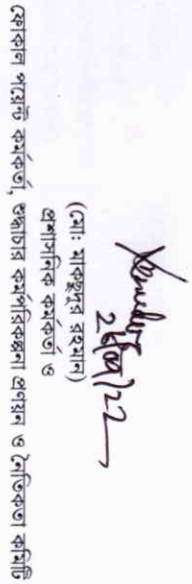 (মো: মাকছুদুর রহমান)
প্রশাসনিক কর্মকর্তা ও
ফোকাল পয়েন্ট কর্মকর্তা, শুদ্ধাচার কর্মপরিকল্পনা প্রণয়ন ও নৈতিকতা কমিটি